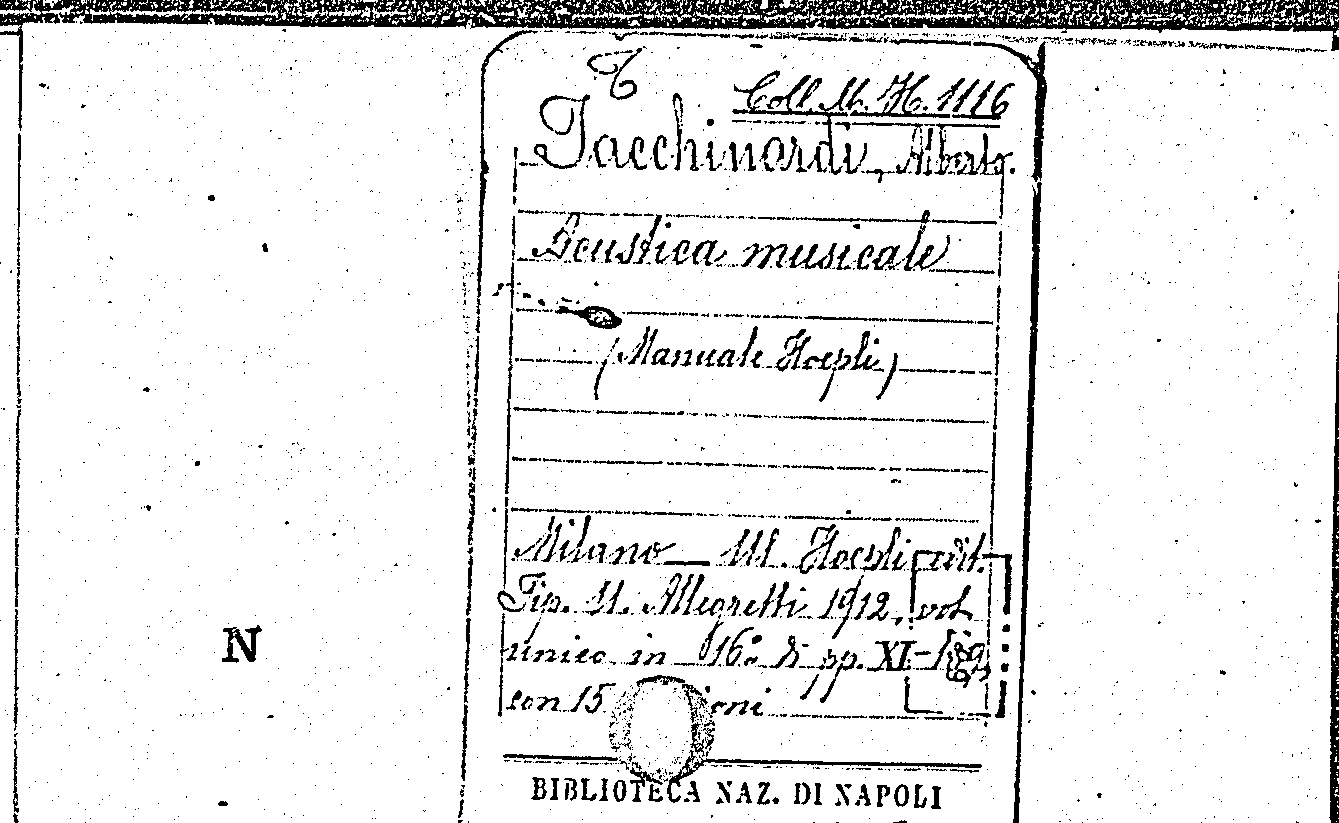 T
Coll. M. H. 1116
Tacchinardi, Alberto.
Acustica musicale
(Manuale Hoepli)
Milano — U. Hoepli edit.
Tip. U. Allegretti 1912, vol.
unico in 16º di pp. XI-
con 15
N
BIBLIOTECA NAZ. DI NAPOLI